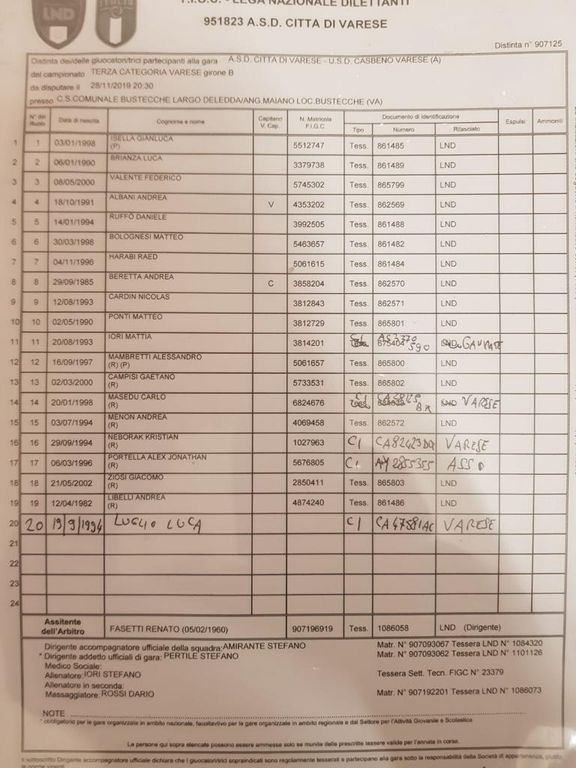 LND
F.I.G.C. - LEGA NAZIONALE DILETTANTI
951823 A.S.D. CITTA DI VARESE
Distinta n° 907125
Distinta dei/delle giuocatori/trici partecipanti alla gara A.S.D. CITTA DI VARESE - U.S.D. CASBENO VARESE (A)
del campionato TERZA CATEGORIA VARESE girone B
da disputare il 28/11/2019 20:30
presso C.S.COMUNALE BUSTECCHE LARGO DELEDDA/ANG.MAIANO LOC.BUSTECCHE (VA)
N° del Ruolo Data di nascita Cognome e nome Capitano V. Cap. N. Matricola F.I.G.C. Documento di identificazione Espulsi Ammoniti
Tipo Numero Rilasciato
1 1 03/01/1998 ISELLA GIANLUCA (P) 5512747 Tess. 861485 LND
2 2 06/01/1990 BRIANZA LUCA 3379738 Tess. 861489 LND
3 3 08/05/2000 VALENTE FEDERICO 5745302 Tess. 865799 LND
4 4 18/10/1991 ALBANI ANDREA V 4353202 Tess. 862569 LND
5 5 14/01/1994 RUFFO DANIELE 3992505 Tess. 861488 LND
6 6 30/03/1998 BOLOGNESI MATTEO 5463657 Tess. 861482 LND
7 7 04/11/1996 HARABI RAED 5061615 Tess. 861484 LND
8 8 29/09/1985 BERETTA ANDREA C 3858204 Tess. 862570 LND
9 9 12/08/1993 CARDIN NICOLAS 3812843 Tess. 862571 LND
10 10 02/05/1990 PONTI MATTEO 3812729 Tess. 865801 LND
11 11 20/08/1993 IORI MATTIA 3814201 CI 590 LND
12 12 16/09/1997 MAMBRETTI ALESSANDRO (R) (P) 5061657 Tess. 865800 LND
13 13 02/03/2000 CAMPISI GAETANO (R) 5733531 Tess. 865802 LND
14 14 20/01/1998 MASEDU CARLO (R) 6824676 CI LND VARESE
15 15 03/07/1994 MENON ANDREA (R) 4069458 Tess. 862572 LND
16 16 29/09/1994 NEBORAK KRISTIAN (R) 1027963 CI VARESE
17 17 06/03/1996 PORTELLA ALEX JONATHAN (R) 5676805 CI AY2855355 ASSO
18 18 21/05/2002 ZIOSI GIACOMO (R) 2850411 Tess. 865803 LND
19 19 12/04/1982 LIBELLI ANDREA (R) 4874240 Tess. 861486 LND
20 20 19/9/1994 LUGLIO LUCA CI VARESE
21
22
23
24
Assitente dell'Arbitro FASETTI RENATO (05/02/1960) 907196919 Tess. 1086058 LND (Dirigente)
Dirigente accompagnatore ufficiale della squadra: AMIRANTE STEFANO Matr. N° 907093067 Tessera LND N° 1084320
* Dirigente addetto ufficiali di gara: PERTILE STEFANO Matr. N° 907093062 Tessera LND N° 1101126
Medico Sociale:
Allenatore: IORI STEFANO Tessera Sett. Tecn. FIGC N° 23379
Allenatore in seconda:
Massaggiatore: ROSSI DARIO Matr. N° 907192201 Tessera LND N° 1086073
NOTE
* obbligatorio per le gare organizzate in ambito nazionale, facoltativo per le gare organizzate in ambito regionale e dal Settore per l'Attività Giovanile e Scolastica
Le persone qui sopra elencate possono essere ammesse solo se munite delle prescritte tessere valide per l'annata in corso.
Il sottoscritto Dirigente accompagnatore ufficiale dichiara che i giuocatori sopraindicati sono regolarmente tesserati e partecipano alla gara sotto la responsabilità della Società di appartenenza, giusto